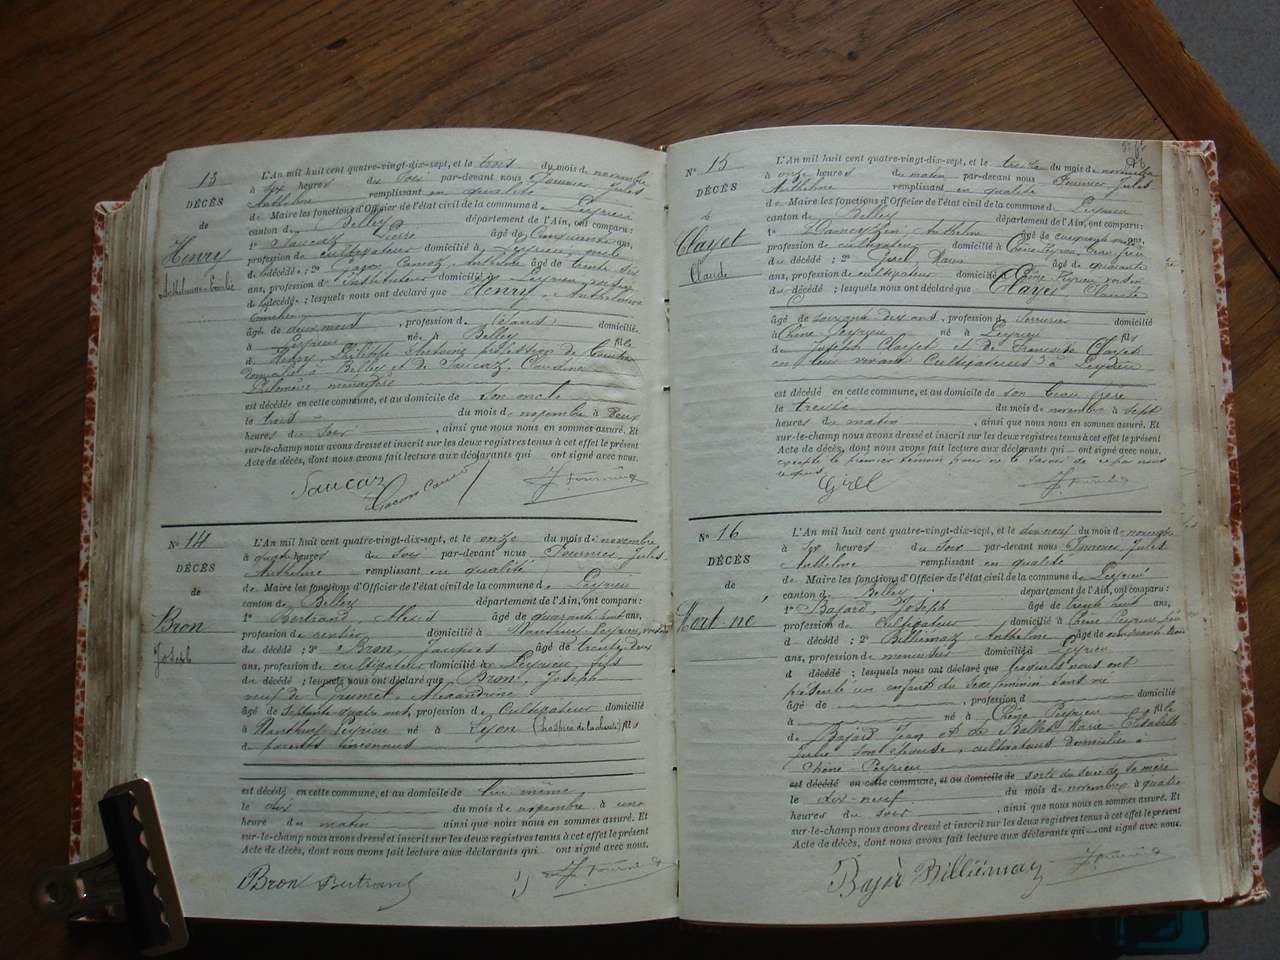 13
DÉCÈS
de
Henry
L'An mil huit cent quatre-vingt-dix-sept, et le trois du mois de novembre
à six heures du soir par-devant nous Fournier Jules
Anthelme remplissant en qualité
de Maire les fonctions d'Officier de l'état civil de la commune de Peyrieu
canton de Belley département de l'Ain, ont comparu :
1° Saucaz Pierre âgé de cinquante ans,
profession de cultivateur domicilié à Peyrieu, oncle
du décédé ; 2° Anthelme âgé de trente six
ans, profession d'instituteur domicilié à Peyrieu voisin
du décédé ; lesquels nous ont déclaré que Henry, Anthelmine
âgé de deux mois, profession de néant domicilié
à Peyrieu né à Belley fille
d Henry, Philippe Antoine profession de
domicilié à Belley et de Saucaz, Claudine
Philomène ménagère
est décédé en cette commune, et au domicile de son oncle
le trois du mois de novembre à deux
heures du soir, ainsi que nous nous en sommes assuré. Et
sur-le-champ nous avons dressé et inscrit sur les deux registres tenus à cet effet le présent
Acte de décès, dont nous avons fait lecture aux déclarants qui ont signé avec nous.
Saucaz
J. Fournier
N° 14
DÉCÈS
de
Bron
Joseph
L'An mil huit cent quatre-vingt-dix-sept, et le onze du mois de novembre
à quatre heures du soir par-devant nous Fournier, Jules
Anthelme remplissant en qualité
de Maire les fonctions d'Officier de l'état civil de la commune de Peyrieu
canton de Belley département de l'Ain, ont comparu :
1° Bertrand, Alexis âgé de quarante huit ans,
profession de rentier domicilié à Nantuy Peyrieu, voisin
du décédé ; 2° Bron, Jacques âgé de trente deux
ans, profession de cultivateur domicilié à Peyrieu, fils
du décédé ; lesquels nous ont déclaré que Bron, Joseph
veuf de Grumet, Alexandrine
âgé de septante quatre ans, profession de cultivateur domicilié
à Nantuy Peyrieu né à Lyon (hospice de la charité) fils
de parents inconnus
est décédé en cette commune, et au domicile de lui même
le dix du mois de novembre à une
heure du matin ainsi que nous nous en sommes assuré. Et
sur-le-champ nous avons dressé et inscrit sur les deux registres tenus à cet effet le présent
Acte de décès, dont nous avons fait lecture aux déclarants qui ont signé avec nous.
Bron Bertrand J. Fournier
N° 15
DÉCÈS
d
Clayet
Claude
L'An mil huit cent quatre-vingt-dix-sept, et le treize du mois de novembre
à onze heures du matin par-devant nous Fournier Jules
Anthelme remplissant en qualité
de Maire les fonctions d'Officier de l'état civil de la commune de Peyrieu
canton de Belley département de l'Ain, ont comparu :
1° Anthelme âgé de cinquante ans,
profession de cultivateur domicilié à Chêne-Peyrieu beau frère
du décédé ; 2° Girel âgé de quarante
ans, profession de cultivateur domicilié à Chêne Peyrieu voisin
du décédé ; lesquels nous ont déclaré que Clayet, Claude
âgé de soixante dix ans, profession de serrurier domicilié
à Chêne-Peyrieu né à Peyrieu fils
de Joseph Clayet et de Françoise Clayet
en leur vivant cultivateurs à Peyrieu
est décédé en cette commune, et au domicile de son beau frère
le treize du mois de novembre à sept
heures du matin, ainsi que nous nous en sommes assuré. Et
sur-le-champ nous avons dressé et inscrit sur les deux registres tenus à cet effet le présent
Acte de décès, dont nous avons fait lecture aux déclarants qui ont signé avec nous.
excepté le premier témoin pour ne le savoir de ce par nous
requis
Girel J. Fournier
N° 16
DÉCÈS
de
Mort né
L'An mil huit cent quatre-vingt-dix-sept, et le dix-neuf du mois de novembre
à six heures du soir par-devant nous Fournier Jules
Anthelme remplissant en qualité
de Maire les fonctions d'Officier de l'état civil de la commune de Peyrieu
canton de Belley département de l'Ain, ont comparu :
1° Bajard, Joseph âgé de trente huit ans,
profession de cultivateur domicilié à Chêne Peyrieu
d décédé ; 2° Billiémaz Anthelme âgé de
ans, profession de menuisier domicilié à Peyrieu
d décédé ; lesquels nous ont déclaré que lesquels nous ont
présenté un enfant du sexe féminin sans vie
âgé de , profession d domicilié
à né à Chêne Peyrieu fille
de Bajard Jean et de Marie-Elisabeth
Julie son épouse, cultivateurs domiciliés à
Chêne-Peyrieu
est décédé en cette commune, et au domicile de sorte du sein de sa mère
le dix-neuf du mois de novembre à quatre
heures du soir, ainsi que nous nous en sommes assuré. Et
sur-le-champ nous avons dressé et inscrit sur les deux registres tenus à cet effet le présent
Acte de décès, dont nous avons fait lecture aux déclarants qui ont signé avec nous.
Bajard Billiémaz J. Fournier